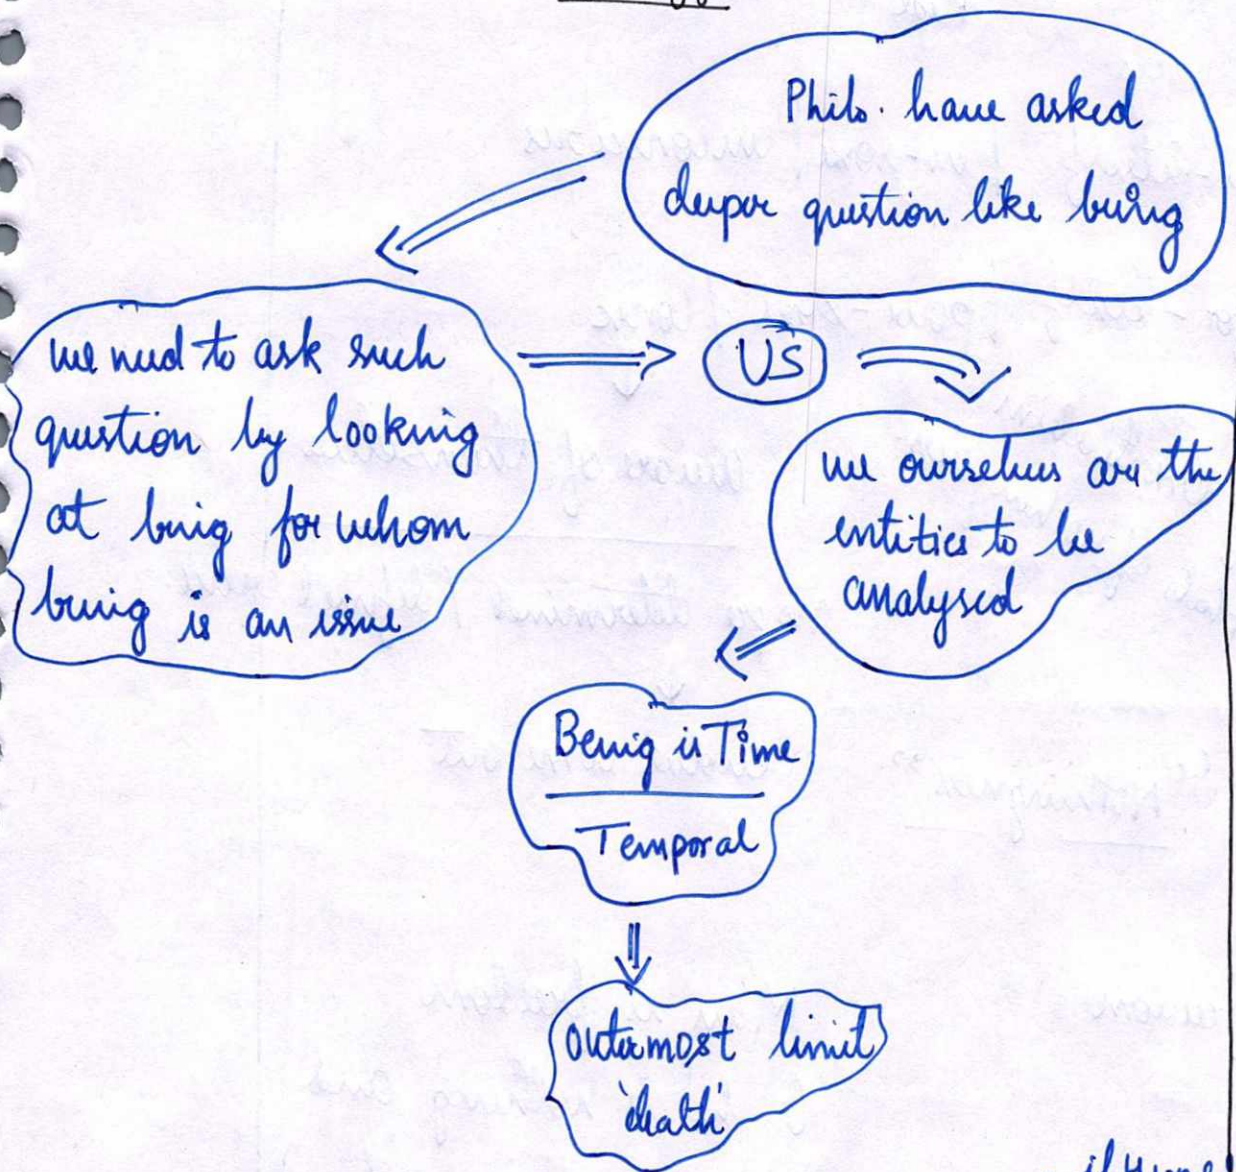 Philo. have asked
deeper question like being
we need to ask such
question by looking
at being for whom
being is an issue
US
we ourselves are the
entities to be
analysed
Being is Time
Temporal
outermost limit
'death'